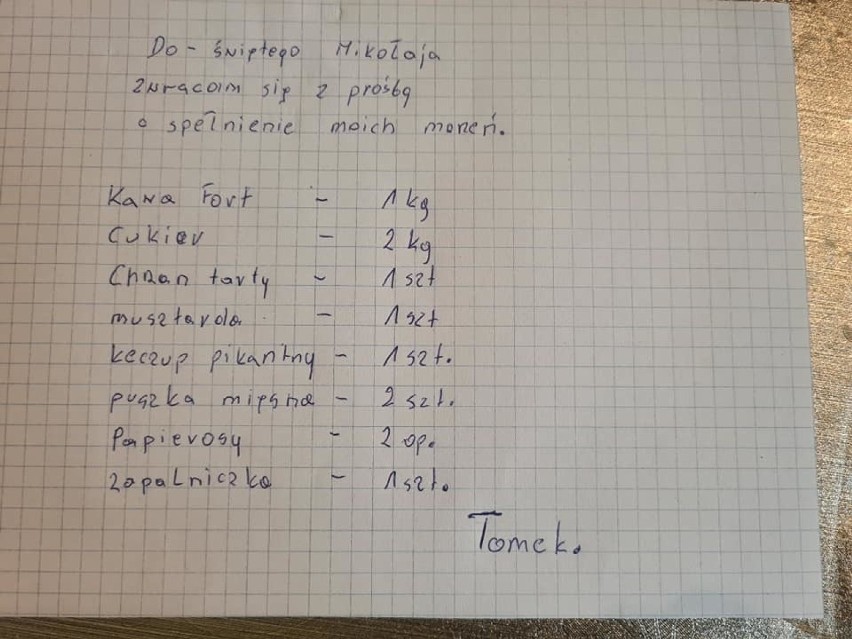 Do - świętego Mikołaja
zwracam się z prośbą
o spełnienie moich marzeń.
Kawa Fort - 1 kg
Cukier - 2 kg
Chrzan tarty - 1 szt
musztarda - 1 szt
keczup pikantny - 1 szt.
puszka mięsna - 2 szt.
Papierosy - 2 op.
zapalniczka - 1 szt.
Tomek.